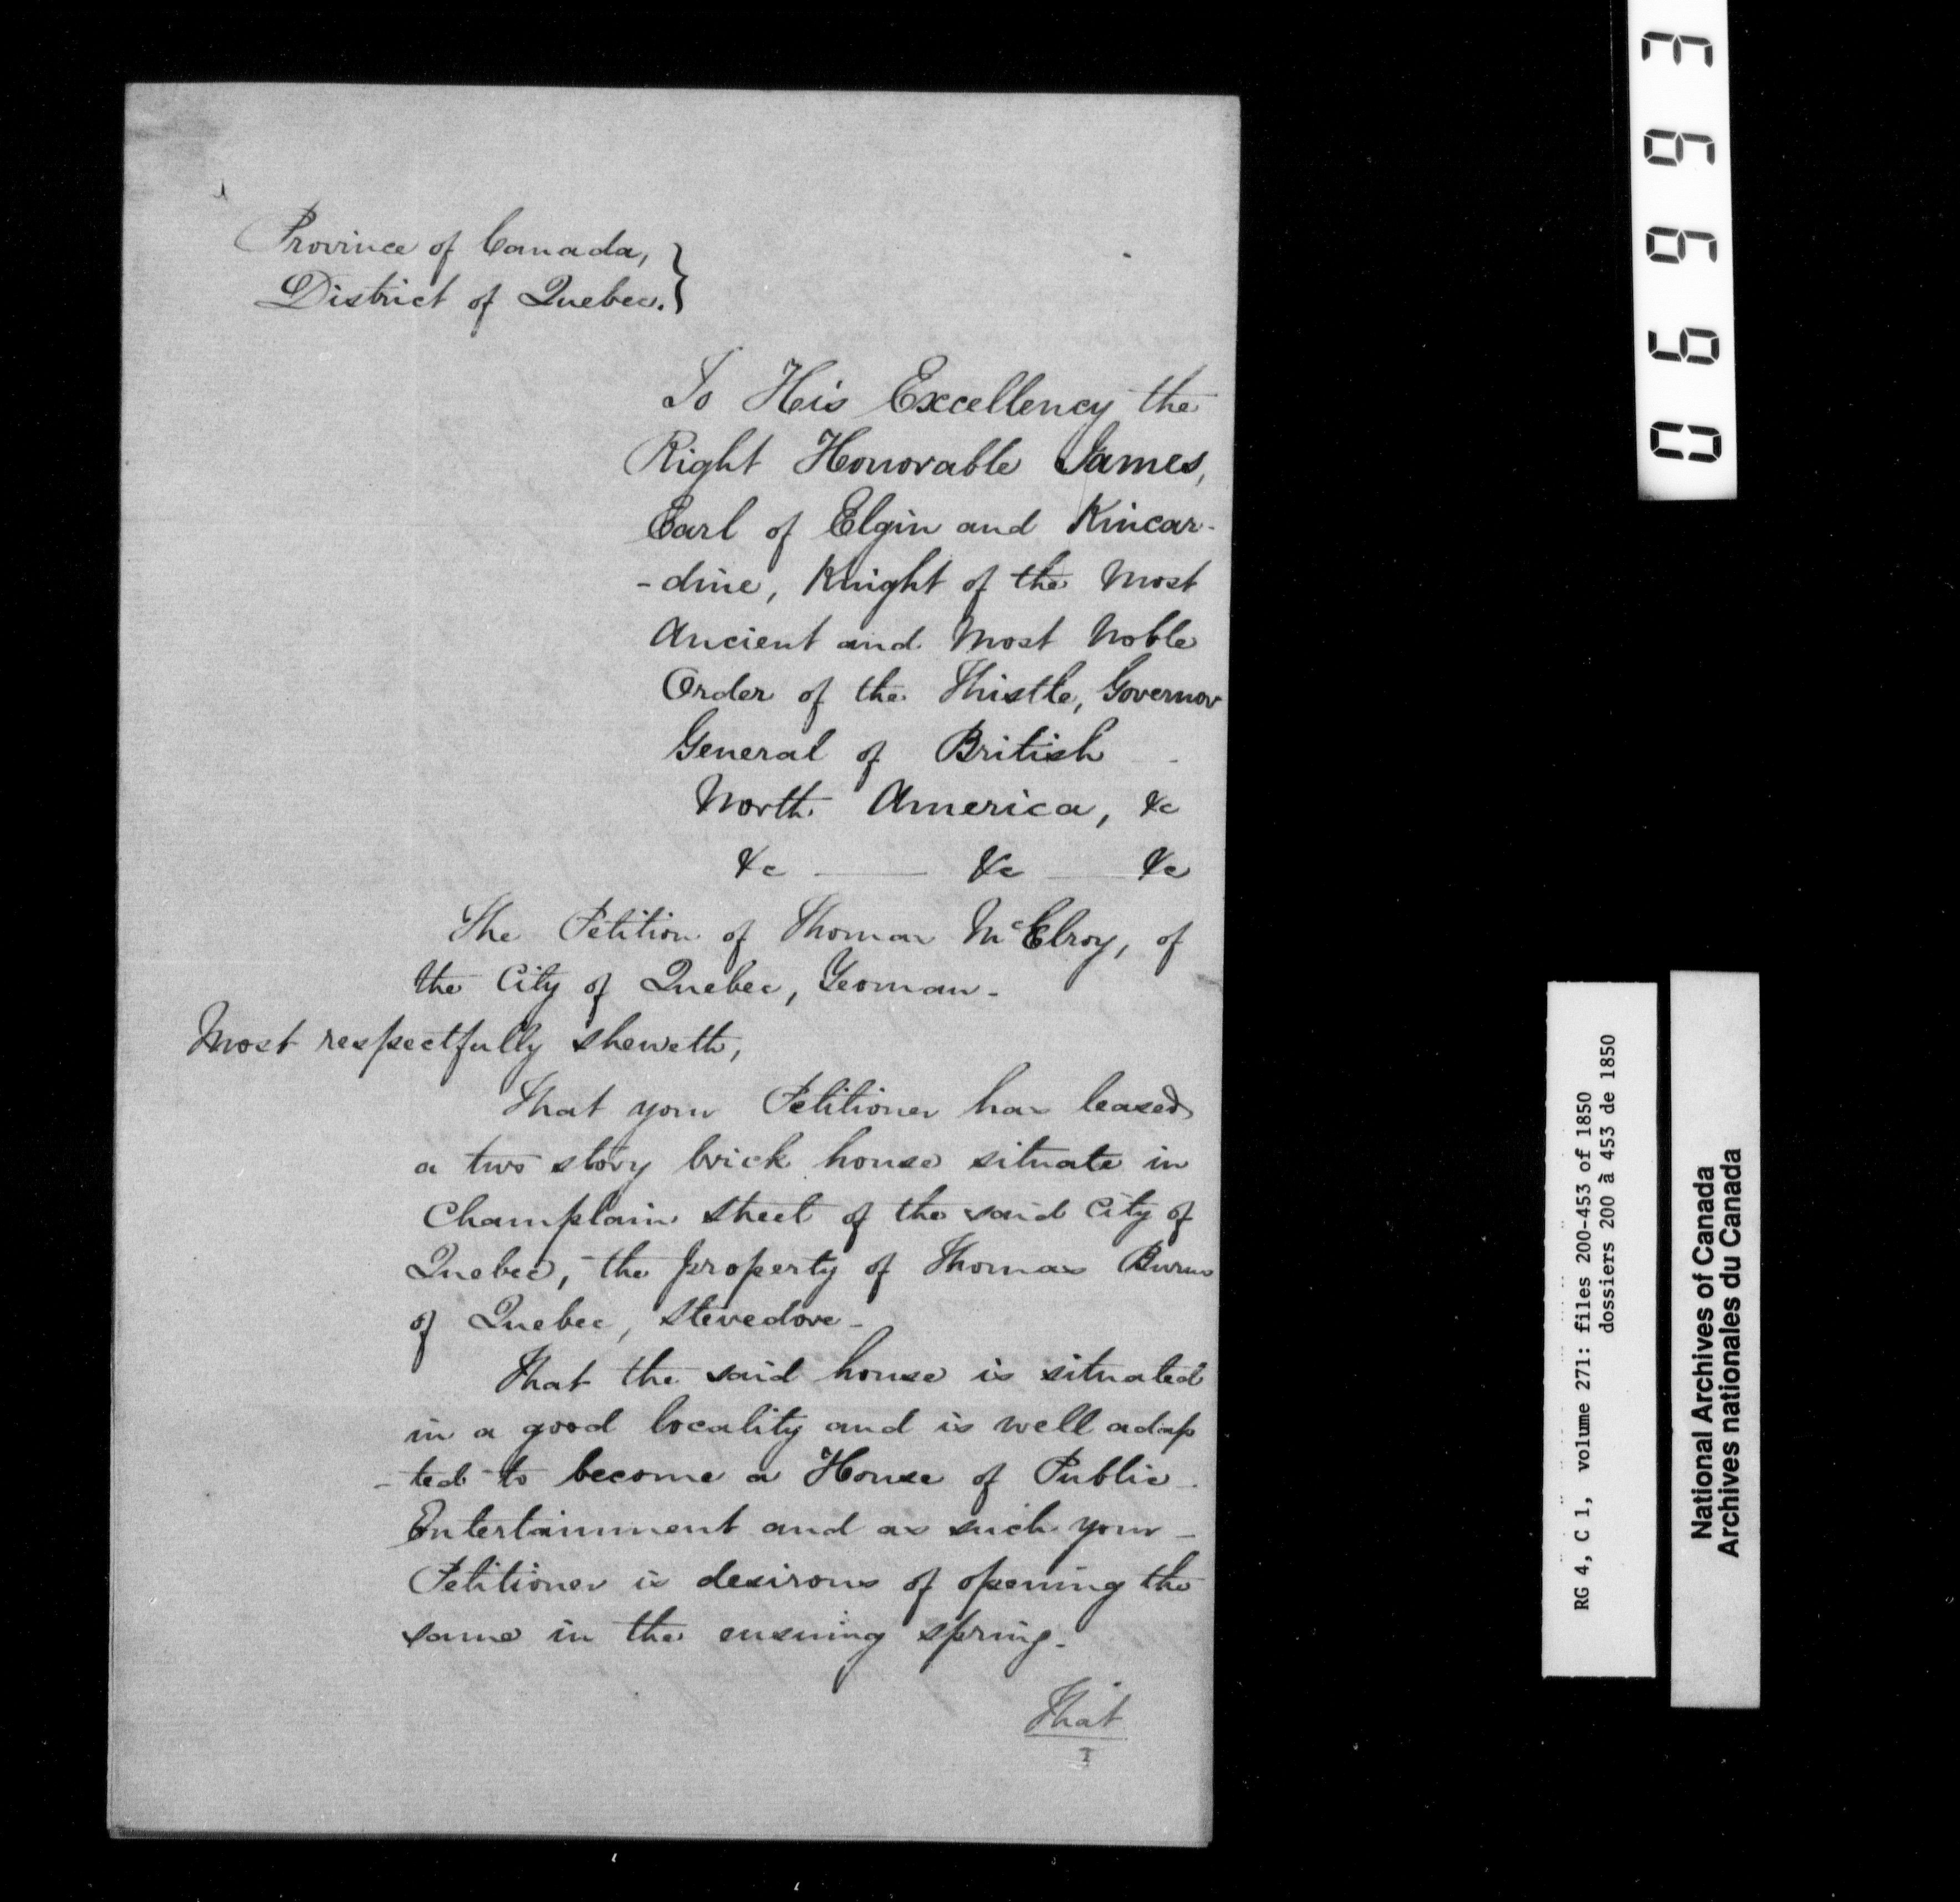 Province of Canada,
District of Quebec.}
To His Excellency the
Right Honorable James,
Earl of Elgin and Kincar-
-dine, Knight of the Most
Ancient and Most Noble
Order of the Thistle, Governor
General of British
North America, &c
&c — &c — &c
The Petition of Thomas McElroy, of
the City of Quebec, Yeoman -
Most respectfully sheweth,
That your Petitioner has leased
a two story brick house situate in
Champlain Street of the said City of
Quebec, the property of Thomas Burns
of Quebec, Stevedore -
That the said house is situated
in a good locality and is well adap
-ted to become a House of Public -
Entertainment and as such your -
Petitioner is desirous of opening the
same in the ensuing spring -
That
06993
RG 4, C 1, volume 271: files 200-453 of 1850
dossiers 200 à 453 de 1850
National Archives of Canada
Archives nationales du Canada